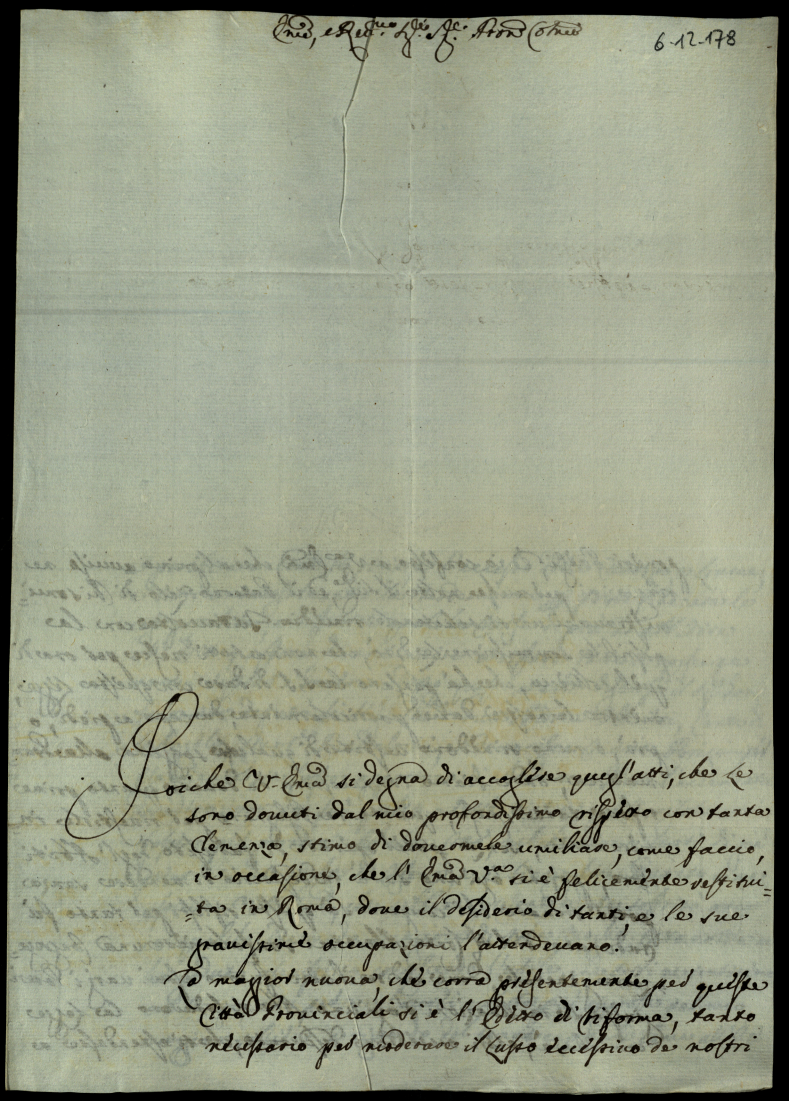 Em̃o, e Re.mo Sig.e Sig.r Pron Colmo
6-12-178
Poiche V. Em̃a si degna di accogliere quegl'atti, che Le
sono dovuti dal mio profondissimo rispetto con tanta
Clemenza, stimo di dovermele umiliare, come faccio,
in occasione, che l'Em̃a V.ra si è felicemente restitui=
=ta in Roma, dove il desiderio di tanti, e le sue
gravissime occupazioni l'attendevano.
La maggior nuova, che corra presentemente per queste
Città Provinciali si è l'Editto di riforma, tanto
necessario per moderare il lusso eccessivo de nostri